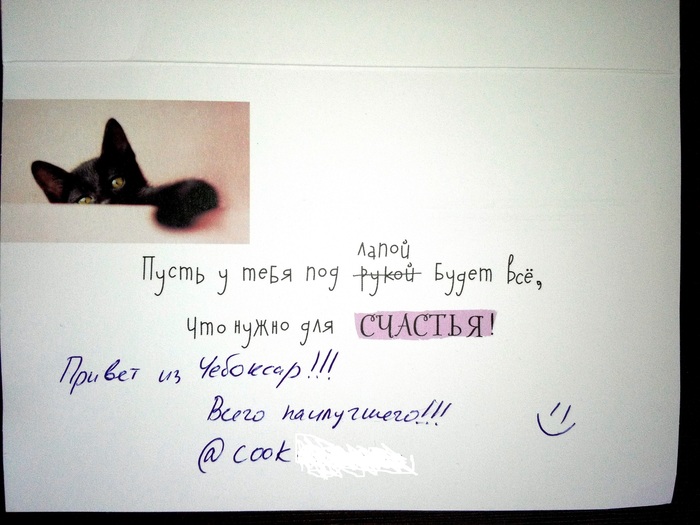 лапой
Пусть у тебя под рукой будет всё,
что нужно для СЧАСТЬЯ!
Привет из Чебоксар!!!
Всего наилучшего!!!
@cook